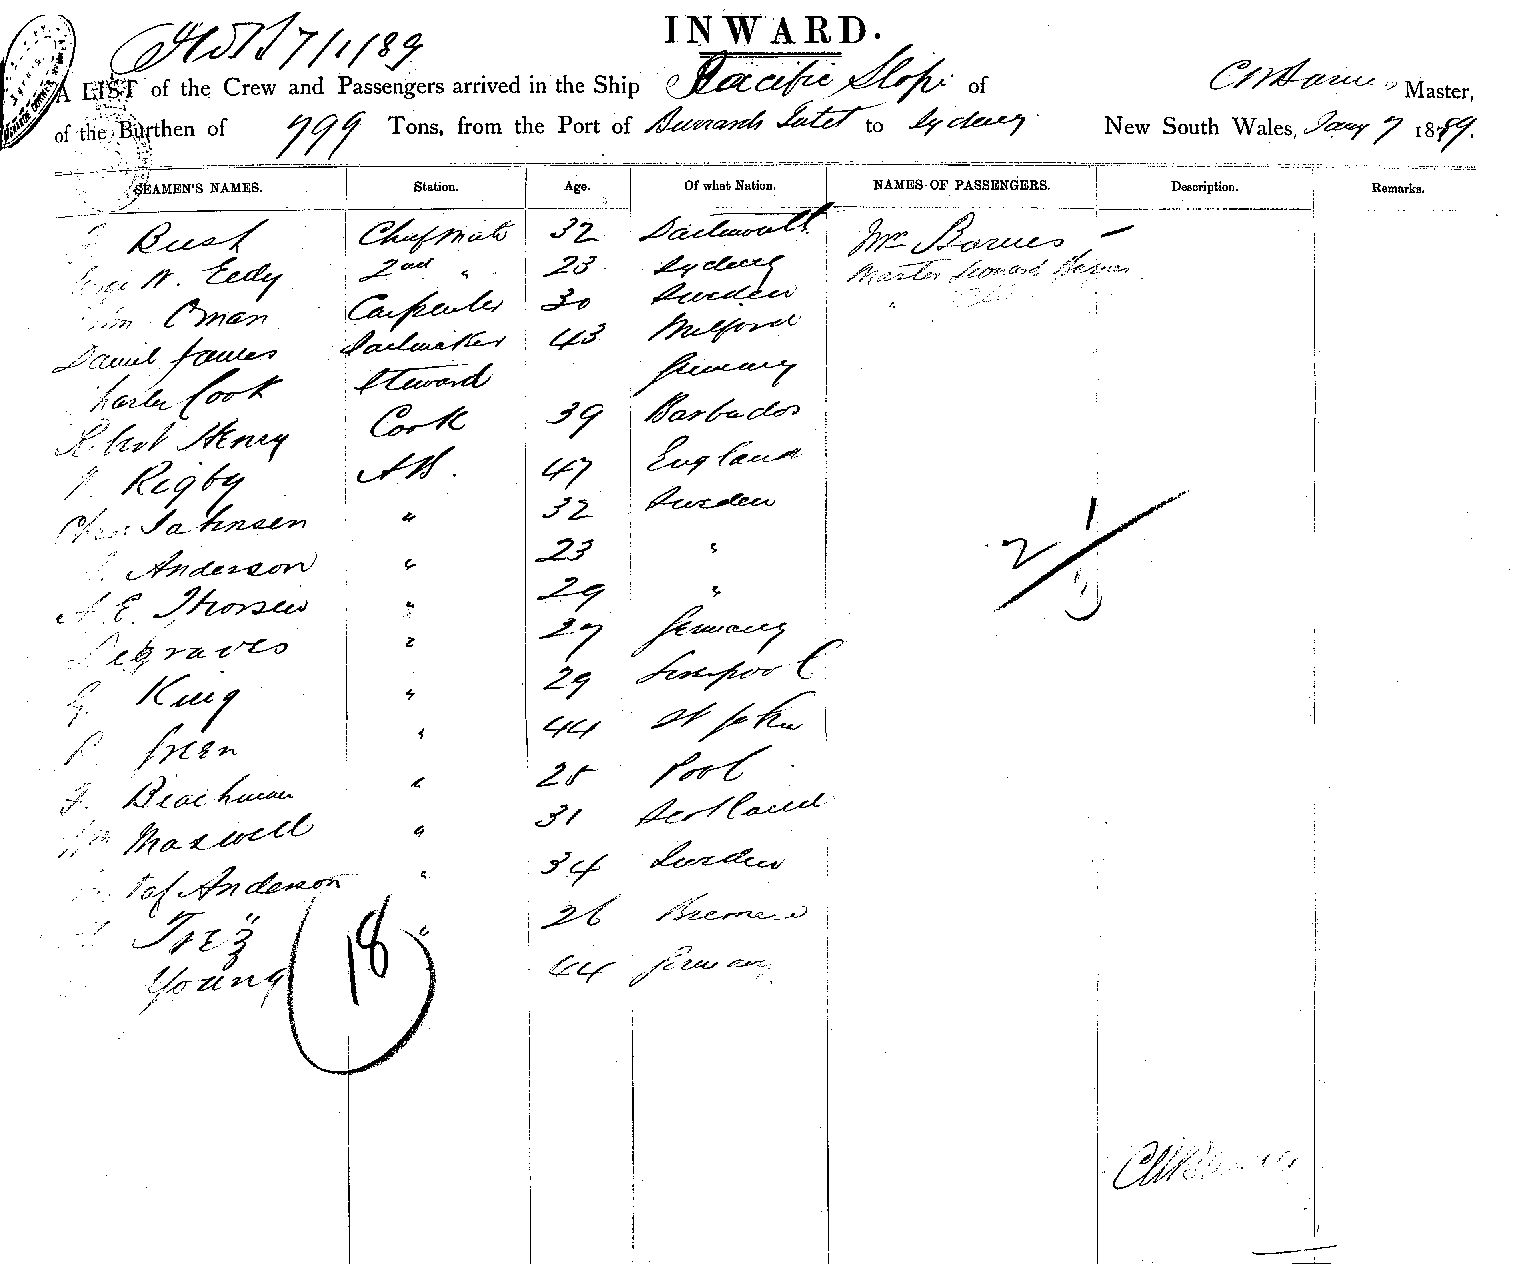 INWARD.
7/1/89
A LIST of the Crew and Passengers arrived in the Ship Pacific Slope of C M Barnes Master,
of the Burthen of 799 Tons, from the Port of Burrards Inlet to Sydney New South Wales, Jany 7 1889.
SEAMEN'S NAMES. Station. Age. Of what Nation. NAMES OF PASSENGERS. Description. Remarks.
Bush Chief Mate 32 Dartmouth Mrs Barnes
W. Eedy 2nd " 23 Sydney Master Leonard Barnes
Oman Carpenter 30 Sweden "
Daniel James Sailmaker 43 Milford
Charles Cook Steward Germany
Robert Henry Cook 39 Barbados
Rigby AB. 47 England
Chas Johnsen " 32 Sweden
Anderson " 23 "
A. E. Thorsen " 29 "
Degraves " 27 Germany
G. King " 29 Liverpool
P. Green " 44 St John
F. Beachman " 25 Pool
Wm Maxwell " 31 Scotland
Gustaf Anderson " 34 Sweden
Trez " 26 Bremen
Young 44 Germany
18
2 1
C M Barnes